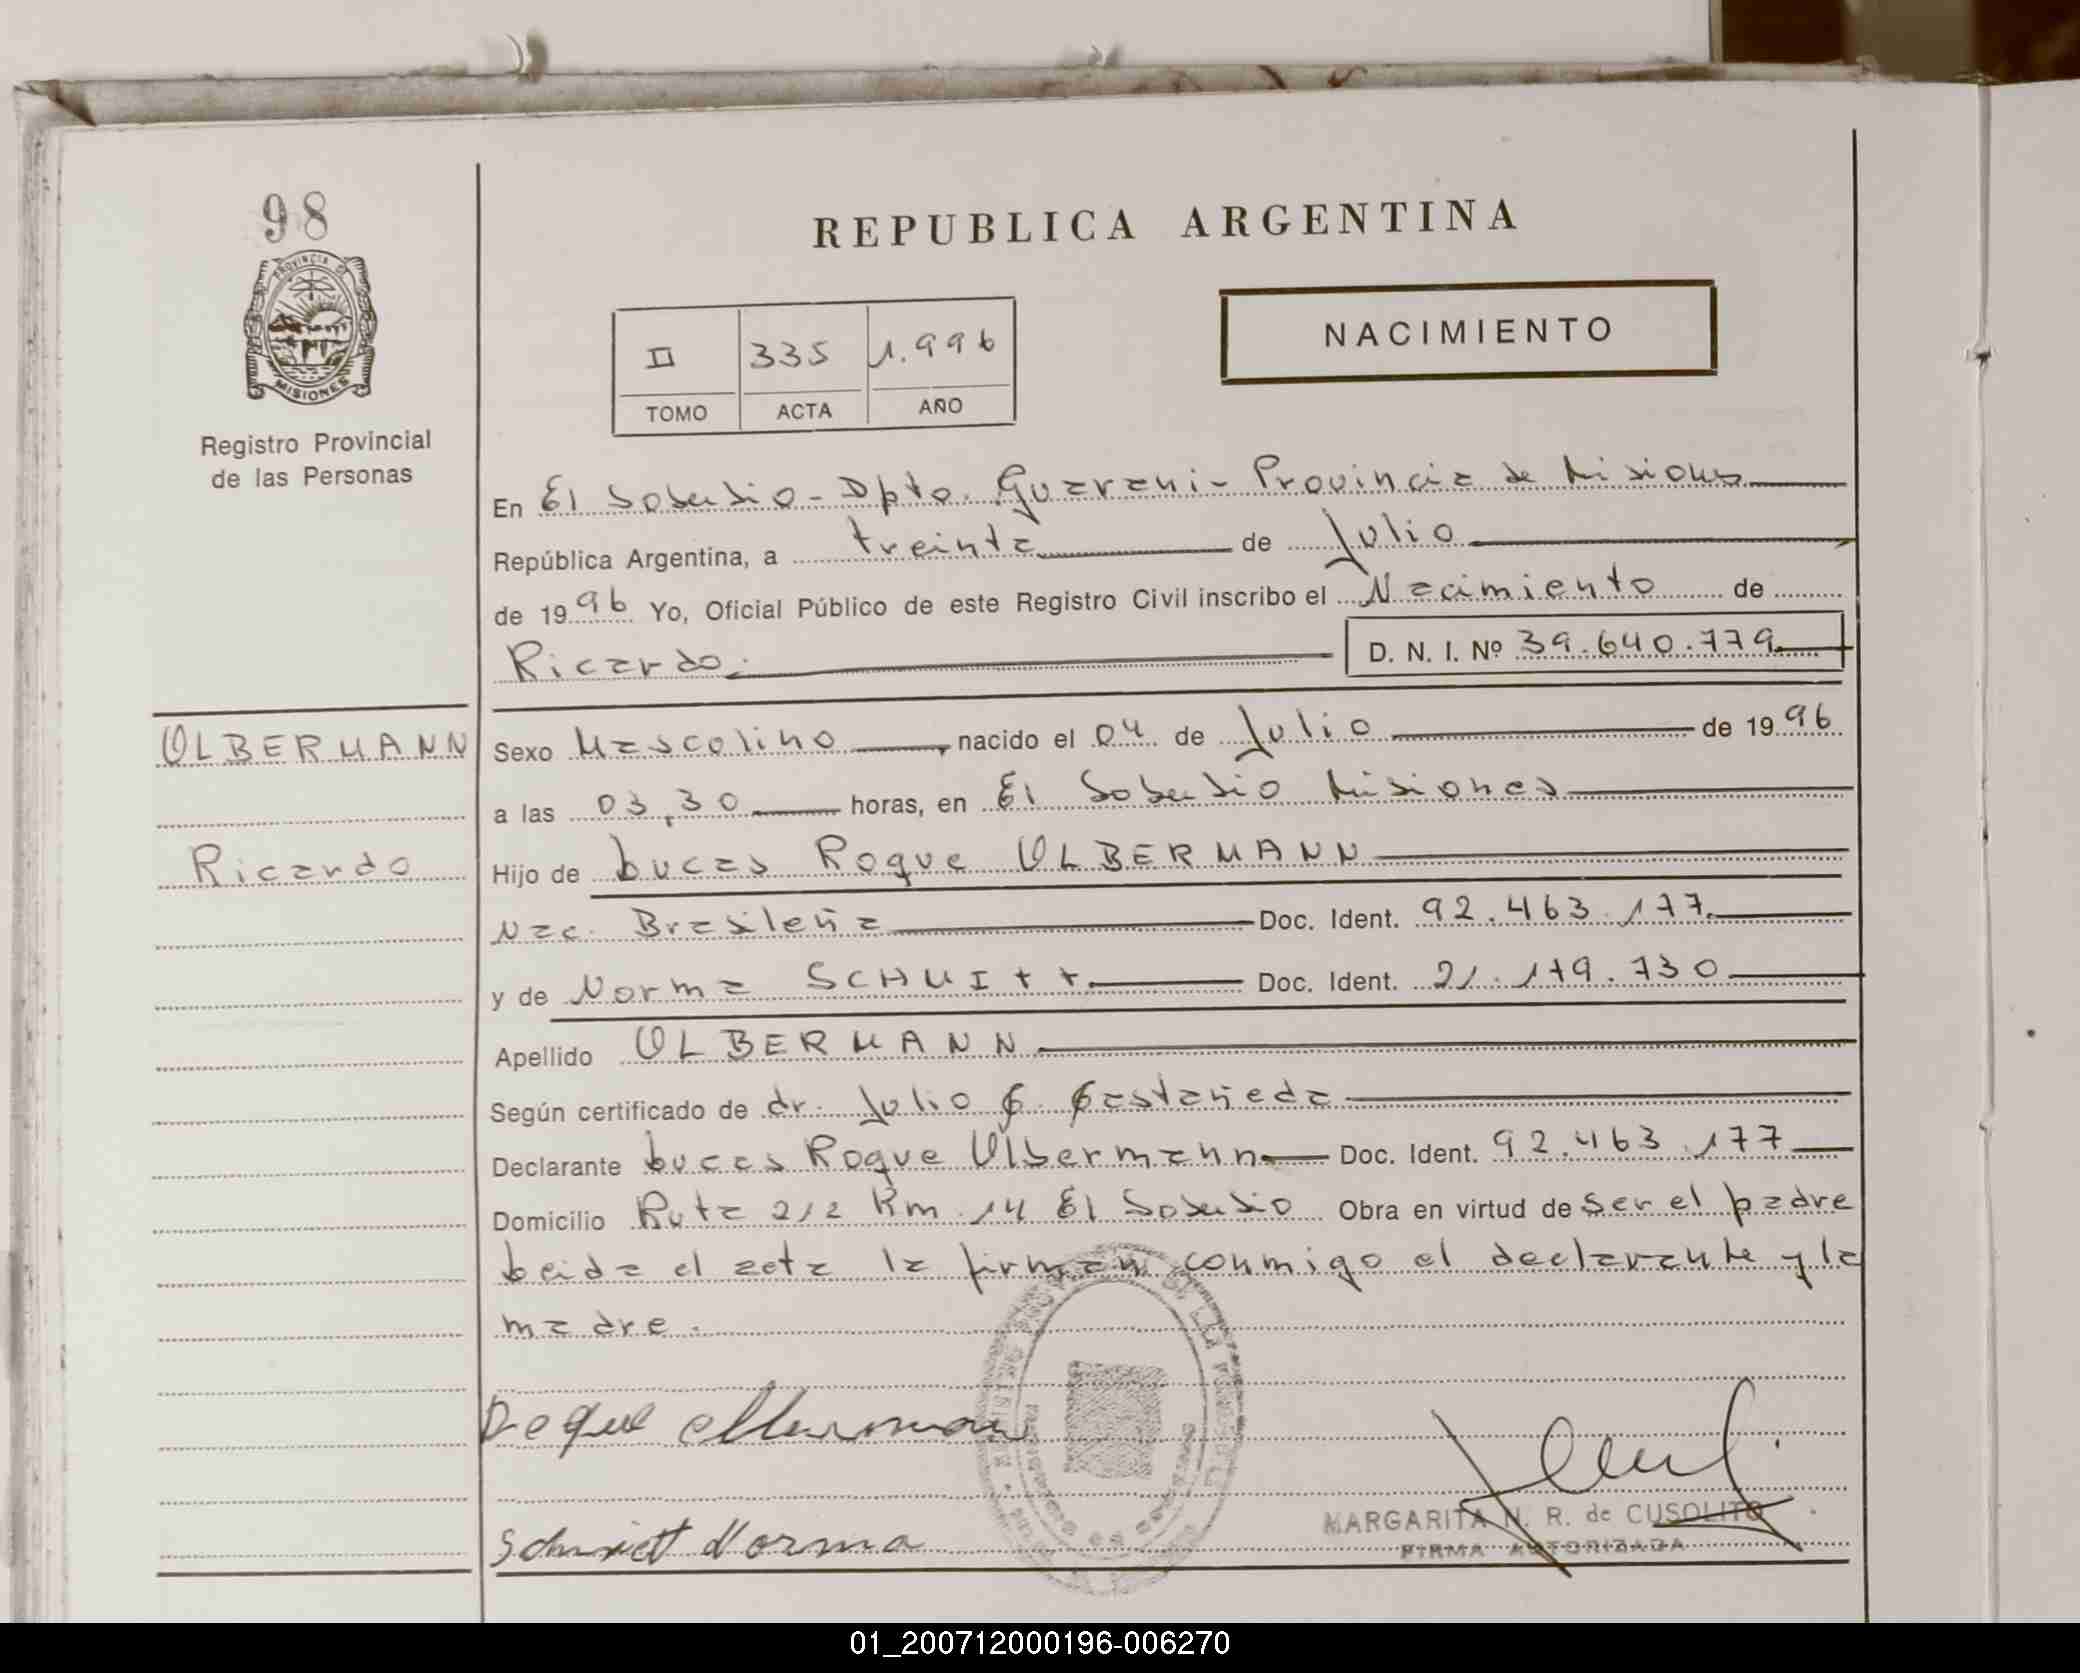 98
PROVINCIA DE
MISIONES
Registro Provincial
de las Personas
REPUBLICA ARGENTINA
II 335 1.996
TOMO ACTA AÑO
NACIMIENTO
En El Soberbio - Dpto. Guarani - Provincia de Misiones
República Argentina, a treinta de Julio
de 1996 Yo, Oficial Público de este Registro Civil inscribo el Nacimiento de
Ricardo. D. N. I. Nº 39.640.779
OLBERMANN
Ricardo
Sexo Masculino, nacido el 04 de Julio de 1996
a las 03,30 horas, en El Soberbio Misiones
Hijo de Lucas Roque OLBERMANN
Nac. Brasileña Doc. Ident. 92.463.177
y de Norma SCHMITT Doc. Ident. 21.179.730
Apellido OLBERMANN
Según certificado de dr. Julio C. Castañeda
Declarante Lucas Roque Olbermann Doc. Ident. 92.463.177
Domicilio Ruta 212 Km 14 El Soberbio Obra en virtud de ser el padre
Leida el acta la firman conmigo el declarante y la
madre.
Schmitt Norma
MARGARITA N. R. de CUSOLITO
FIRMA AUTORIZADA
01_200712000196-006270